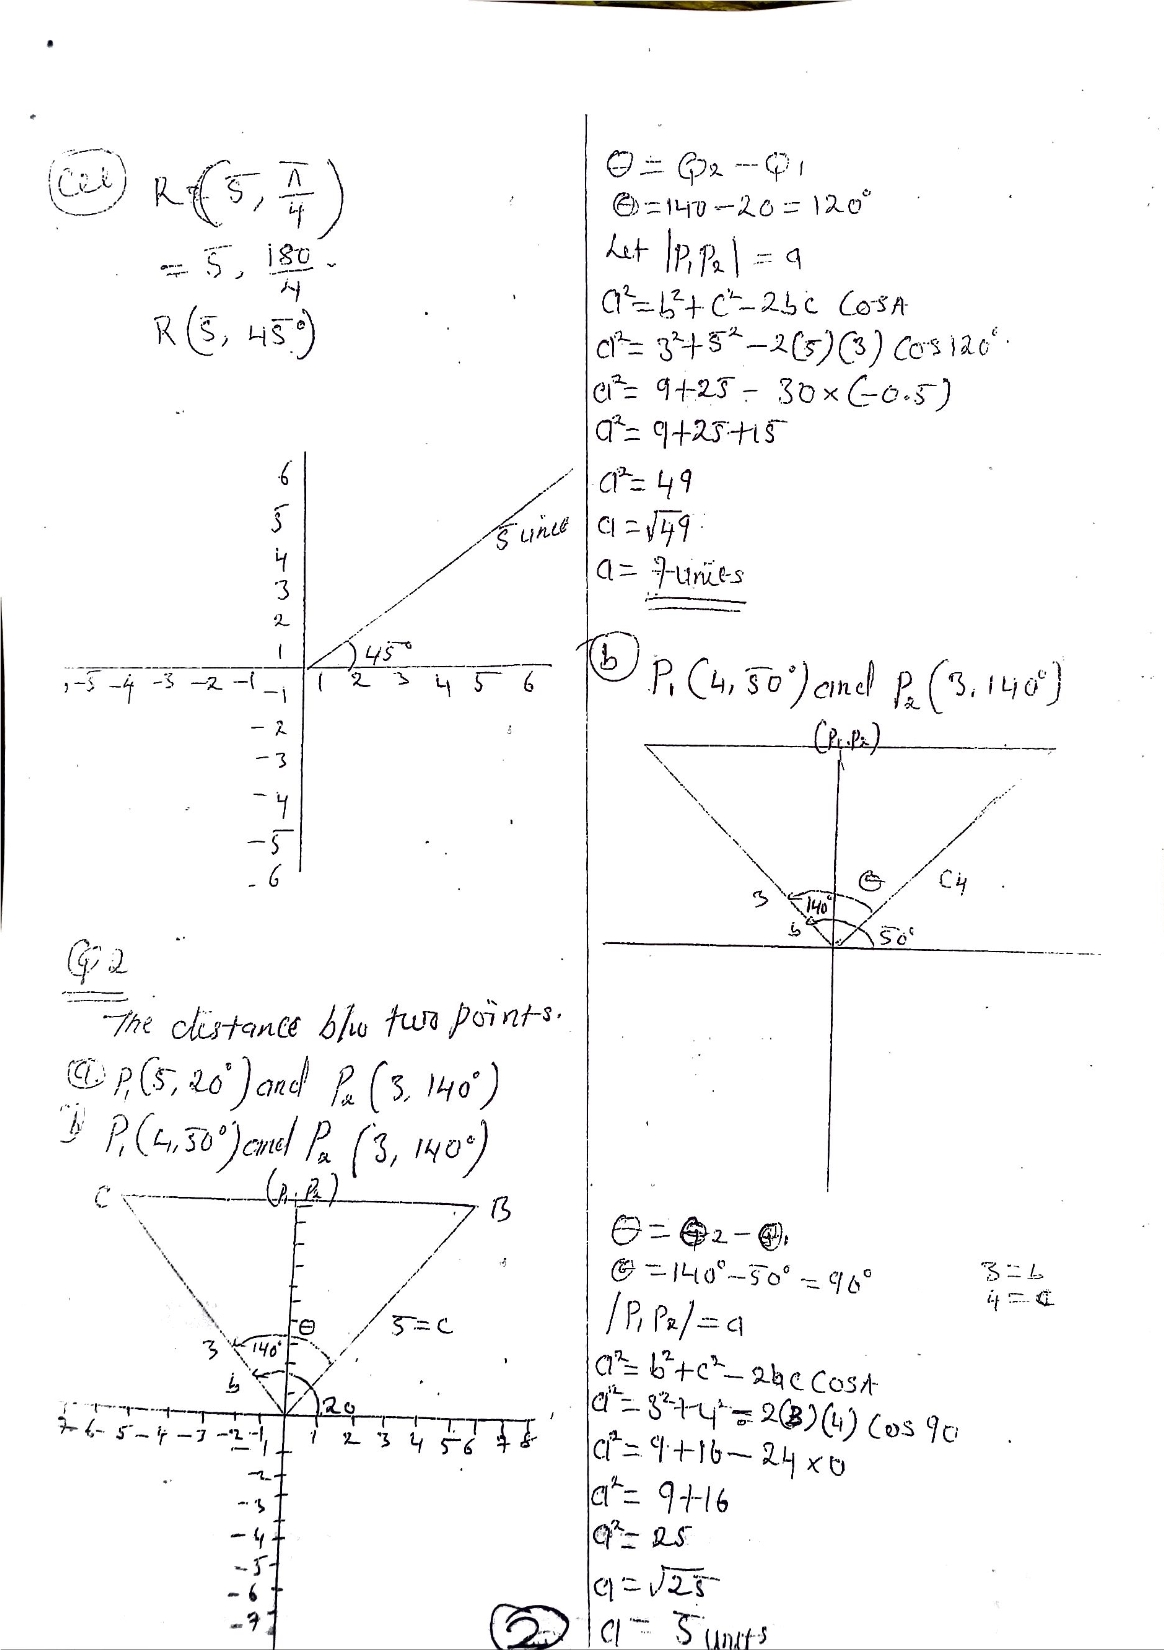 R=(5, π/4)
= 5, 180/4
R(5, 45°)
6
5
4
3
2
1
45°
-5 -4 -3 -2 -1 1 2 3 4 5 6
-1
-2
-3
-4
-5
-6
Q.2
The distance b/w two points.
(a) P₁(5, 20°) and P₂(3, 140°)
b) P₁(4, 50°) and P₂(3, 140°)
(P₁.P₂)
C B
θ
5=c
3 140°
b
20
7 -6 -5 -4 -3 -2 -1 1 2 3 4 5 6 7 8
-1
-2
-3
-4
-5
-6
-7
2
θ = Q₂ - Q₁
θ = 140 - 20 = 120°
Let |P₁P₂| = a
a² = b² + c² - 2bc CosA
a² = 3² + 5² - 2(5)(3) Cos120°
a² = 9+25 - 30×(-0.5)
a² = 9+25+15
a² = 49
a = √49
a = 7units
(b) P₁(4, 50°) and P₂(3, 140°)
(P₁.P₂)
θ C4
3 140°
b 50°
θ = Q₂ - Q₁
θ = 140° - 50° = 90°
3 = b
4 = c
|P₁P₂| = a
a² = b² + c² - 2bc CosA
a² = 3² + 4² = 2(3)(4) Cos 90
a² = 9+16 - 24×0
a² = 9+16
a² = 25
a = √25
a = 5 units